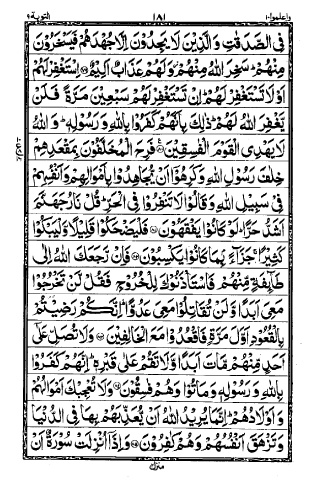 واعلموا ١٠ ١٨١ التوبة ٩
فِى الصَّدَقٰتِ وَالَّذِيْنَ لَا يَجِدُوْنَ اِلَّا جُهْدَهُمْ فَيَسْخَرُوْنَ
مِنْهُمْ ؕ سَخِرَ اللّٰهُ مِنْهُمْ ۫ وَلَهُمْ عَذَابٌ اَلِيْمٌ ﴿۷۹﴾ اِسْتَغْفِرْ لَهُمْ
اَوْ لَا تَسْتَغْفِرْ لَهُمْ ؕ اِنْ تَسْتَغْفِرْ لَهُمْ سَبْعِيْنَ مَرَّةً فَلَنْ
يَّغْفِرَ اللّٰهُ لَهُمْ ؕ ذٰلِكَ بِاَنَّهُمْ كَفَرُوْا بِاللّٰهِ وَرَسُوْلِهٖ ؕ وَاللّٰهُ
لَا يَهْدِى الْقَوْمَ الْفٰسِقِيْنَ ﴿۸۰﴾ فَرِحَ الْمُخَلَّفُوْنَ بِمَقْعَدِهِمْ
خِلٰفَ رَسُوْلِ اللّٰهِ وَكَرِهُوْۤا اَنْ يُّجَاهِدُوْا بِاَمْوَالِهِمْ وَاَنْفُسِهِمْ
فِيْ سَبِيْلِ اللّٰهِ وَقَالُوْا لَا تَنْفِرُوْا فِى الْحَرِّ ؕ قُلْ نَارُ جَهَنَّمَ
اَشَدُّ حَرًّا ؕ لَوْ كَانُوْا يَفْقَهُوْنَ ﴿۸۱﴾ فَلْيَضْحَكُوْا قَلِيْلًا وَّلْيَبْكُوْا
كَثِيْرًا ۚ جَزَآءًۢ بِمَا كَانُوْا يَكْسِبُوْنَ ﴿۸۲﴾ فَاِنْ رَّجَعَكَ اللّٰهُ اِلٰى
طَآئِفَةٍ مِّنْهُمْ فَاسْتَاْذَنُوْكَ لِلْخُرُوْجِ فَقُلْ لَّنْ تَخْرُجُوْا
مَعِيَ اَبَدًا وَّلَنْ تُقَاتِلُوْا مَعِيَ عَدُوًّا ؕ اِنَّكُمْ رَضِيْتُمْ
بِالْقُعُوْدِ اَوَّلَ مَرَّةٍ فَاقْعُدُوْا مَعَ الْخٰلِفِيْنَ ﴿۸۳﴾ وَلَا تُصَلِّ عَلٰۤى
اَحَدٍ مِّنْهُمْ مَّاتَ اَبَدًا وَّلَا تَقُمْ عَلٰى قَبْرِهٖ ؕ اِنَّهُمْ كَفَرُوْا
بِاللّٰهِ وَرَسُوْلِهٖ وَمَاتُوْا وَهُمْ فٰسِقُوْنَ ﴿۸۴﴾ وَلَا تُعْجِبْكَ اَمْوَالُهُمْ
وَاَوْلَادُهُمْ ؕ اِنَّمَا يُرِيْدُ اللّٰهُ اَنْ يُّعَذِّبَهُمْ بِهَا فِى الدُّنْيَا
وَتَزْهَقَ اَنْفُسُهُمْ وَهُمْ كٰفِرُوْنَ ﴿۸۵﴾ وَاِذَاۤ اُنْزِلَتْ سُوْرَةٌ اَنْ